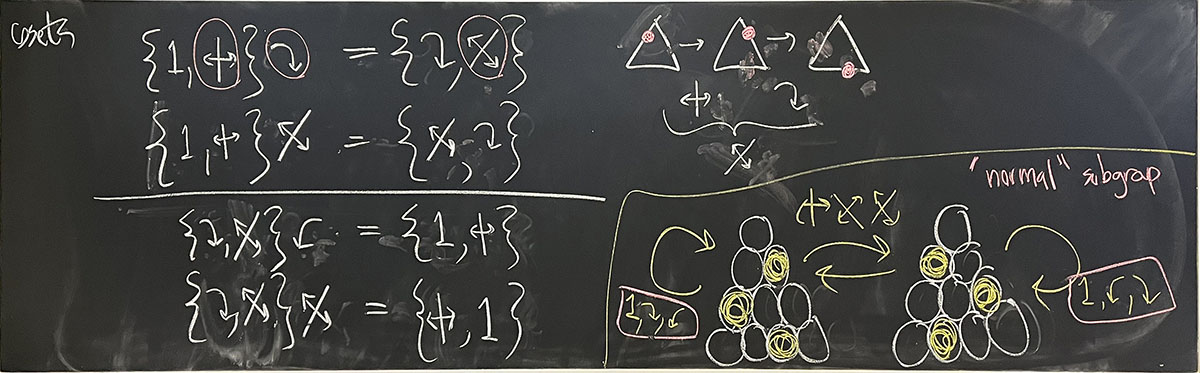 cosets
{1, ↔|} ↷ = {↷, ⤡}
{1, ↔|} ⤡ = {⤡, ↷}
{↷, ⤡} ↶ = {1, ↔|}
{↷, ⤡} ⤡ = {↔|, 1}
→ →
↔| ↷
⤡
"normal" subgrop
↔| ⤢ ⤡
1, ↷, ↶
1, ↶, ↷